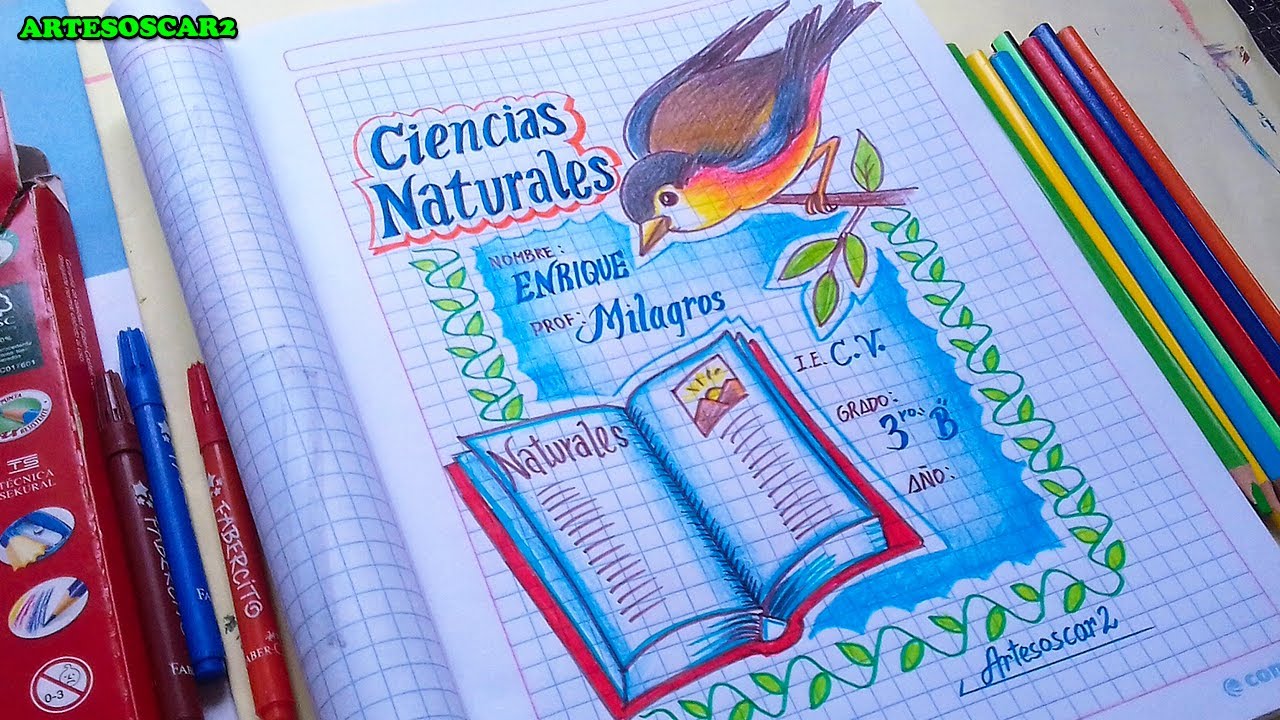 ARTESOSCAR2
Ciencias
Naturales
NOMBRE:
ENRIQUE
PROF: Milagros
I.E. C.V.
GRADO:
3ro. "B"
AÑO:
Naturales
Artesoscar2
TS
TÉCNICA
SEKURAL
0-3
FABERCITO
FABER-C